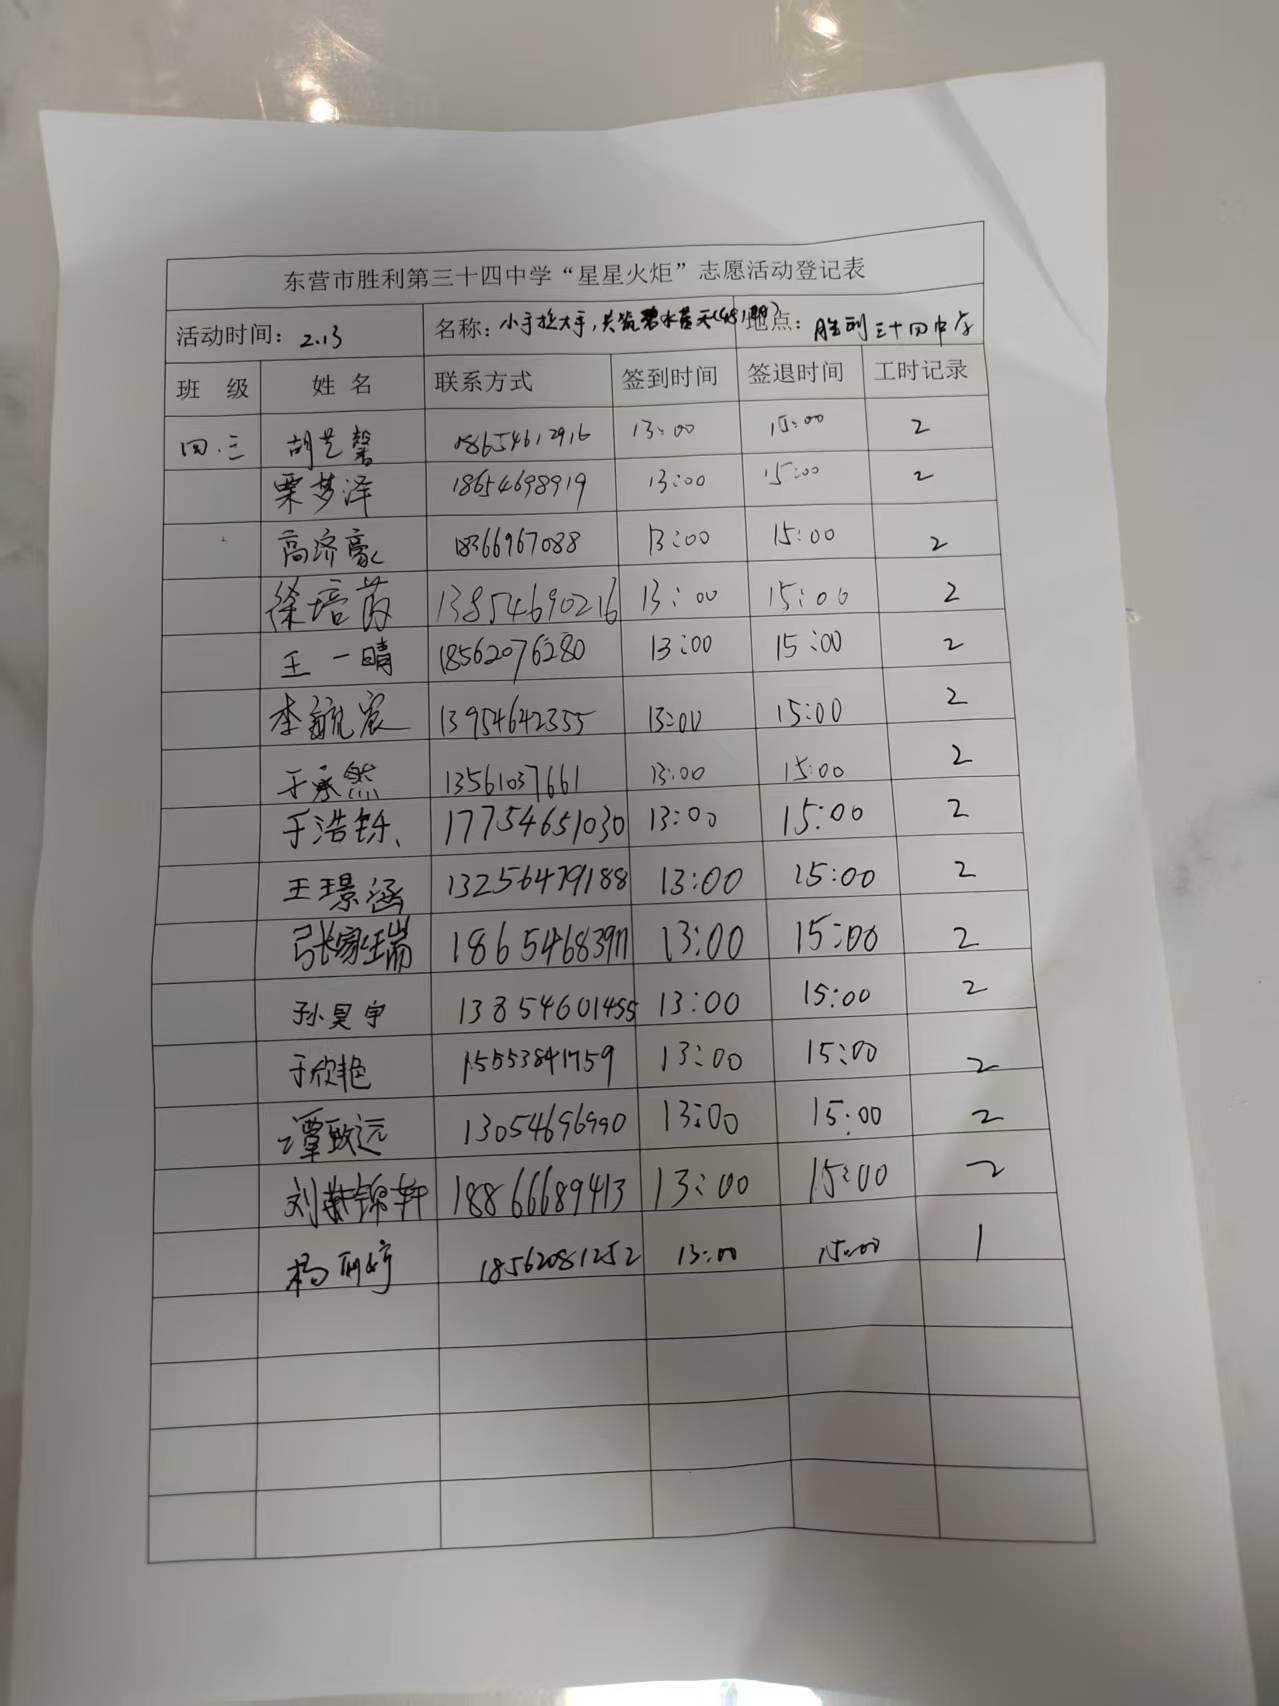 东营市胜利第三十四中学“星星火炬”志愿活动登记表
活动时间：2.13 名称：小手拉大手，共筑碧水蓝天 地点：胜利三十四中学
班 级 姓 名 联系方式 签到时间 签退时间 工时记录
四.三 胡艺馨 18654612916 13:00 15:00 2
栗梦泽 18654698919 13:00 15:00 2
高济豪 18366967088 13:00 15:00 2
徐培芮 13854690216 13:00 15:00 2
王一晴 18562076280 13:00 15:00 2
李毓宸 13954642355 13:00 15:00 2
于承然 13561037661 13:00 15:00 2
于浩铄 17754651030 13:00 15:00 2
王璟涵 13256479188 13:00 15:00 2
张家瑞 18654683911 13:00 15:00 2
孙昊宇 13854601455 13:00 15:00 2
于欣艳 15553841759 13:00 15:00 2
谭致远 13054696990 13:00 15:00 2
刘锦轩 18866689413 13:00 15:00 2
杨雨婷 18562081252 13:00 15:00 1